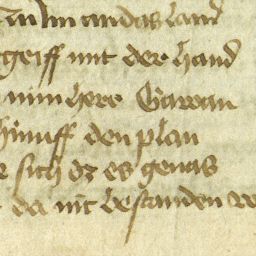 an das land
greiff mit der hand
mim here Gawan
hinuff den plan
sich dz es genas
da mit bestanden